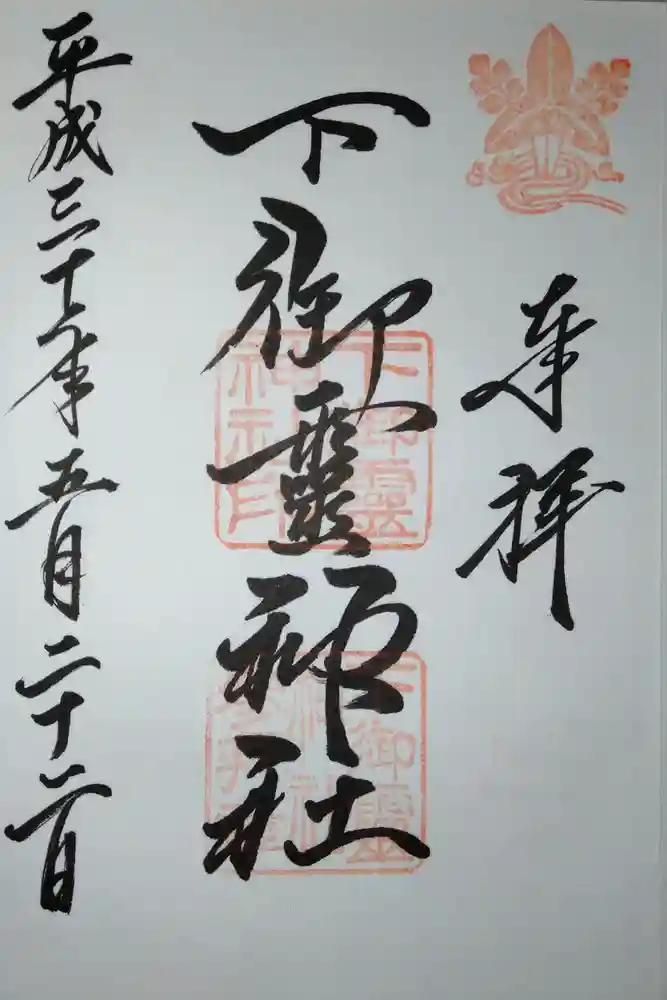 奉拝
下御靈神社
平成三十年五月二十六日
下御霊
神社印
下御霊
神社